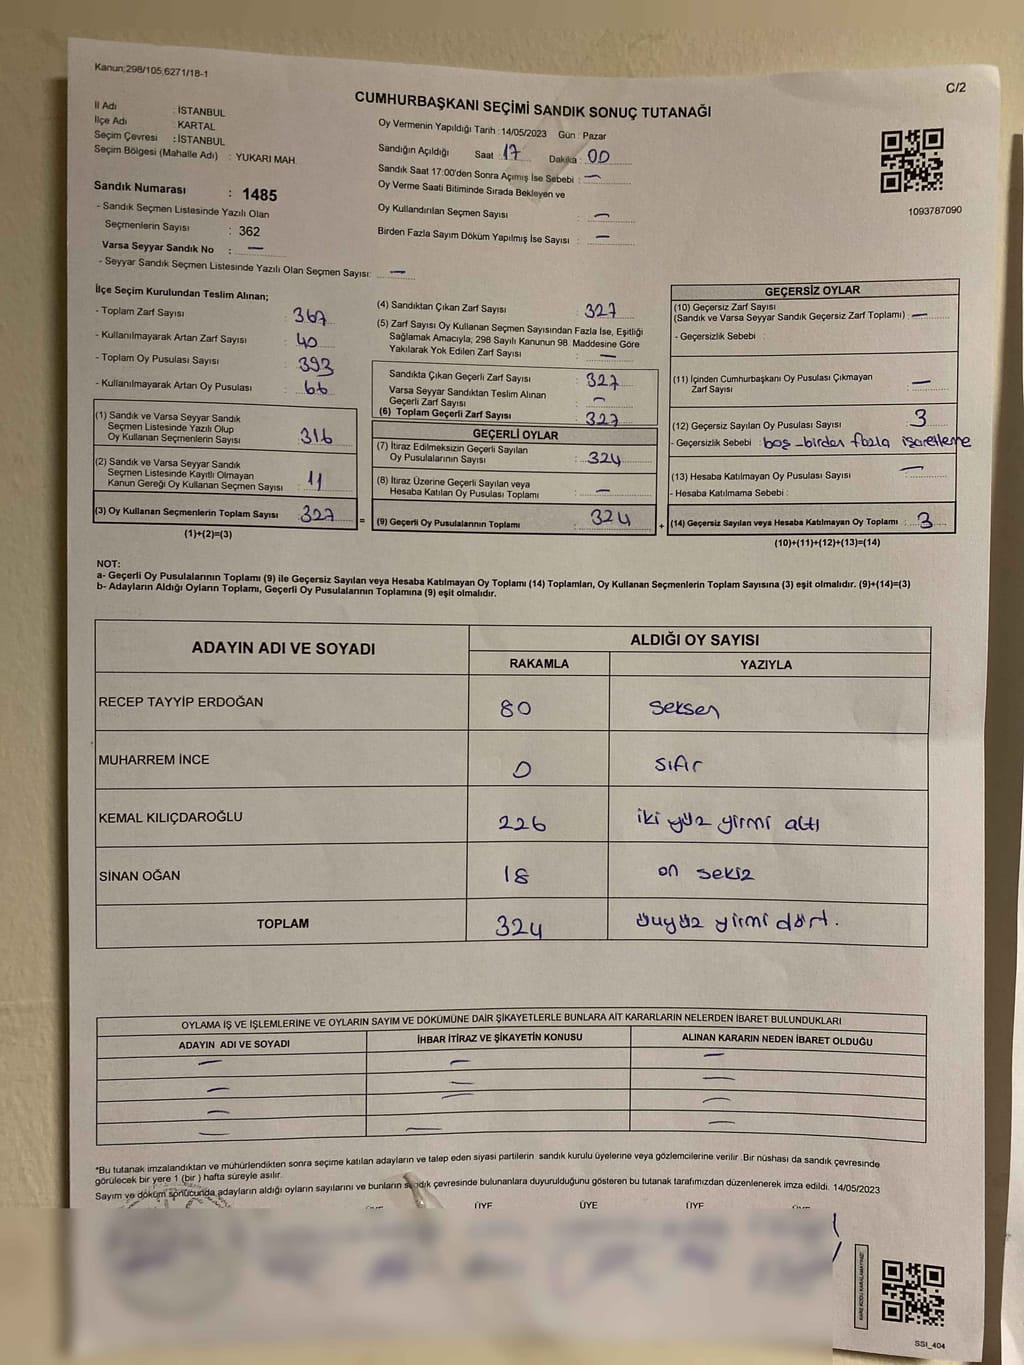 Kanun;298/105,6271/18-1
C/2
CUMHURBAŞKANI SEÇİMİ SANDIK SONUÇ TUTANAĞI
İl Adı : İSTANBUL
İlçe Adı : KARTAL
Seçim Çevresi : İSTANBUL
Seçim Bölgesi (Mahalle Adı) : YUKARI MAH.
Sandık Numarası : 1485
- Sandık Seçmen Listesinde Yazılı Olan
Seçmenlerin Sayısı : 362
Varsa Seyyar Sandık No : —
- Seyyar Sandık Seçmen Listesinde Yazılı Olan Seçmen Sayısı: —
Oy Vermenin Yapıldığı Tarih :14/05/2023 Gün : Pazar
Sandığın Açıldığı Saat : 17 Dakika : 00
Sandık Saat 17:00'den Sonra Açımış İse Sebebi : —
Oy Verme Saati Bitiminde Sırada Bekleyen ve
Oy Kullandırılan Seçmen Sayısı : —
Birden Fazla Sayım Döküm Yapılmış İse Sayısı : —
1093787090
İlçe Seçim Kurulundan Teslim Alınan;
- Toplam Zarf Sayısı : 367
- Kullanılmayarak Artan Zarf Sayısı : 40
- Toplam Oy Pusulası Sayısı : 393
- Kullanılmayarak Artan Oy Pusulası : 66
(1) Sandık ve Varsa Seyyar Sandık
Seçmen Listesinde Yazılı Olup
Oy Kullanan Seçmenlerin Sayısı : 316
(2) Sandık ve Varsa Seyyar Sandık
Seçmen Listesinde Kayıtlı Olmayan
Kanun Gereği Oy Kullanan Seçmen Sayısı : 11
(3) Oy Kullanan Seçmenlerin Toplam Sayısı : 327
(1)+(2)=(3)
=
(4) Sandıktan Çıkan Zarf Sayısı : 327
(5) Zarf Sayısı Oy Kullanan Seçmen Sayısından Fazla İse, Eşitliği
Sağlamak Amacıyla; 298 Sayılı Kanunun 98. Maddesine Göre
Yakılarak Yok Edilen Zarf Sayısı : —
Sandıkta Çıkan Geçerli Zarf Sayısı : 327
Varsa Seyyar Sandıktan Teslim Alınan
Geçerli Zarf Sayısı : —
(6) Toplam Geçerli Zarf Sayısı : 327
GEÇERLİ OYLAR
(7) İtiraz Edilmeksizin Geçerli Sayılan
Oy Pusulalarının Sayısı : 324
(8) İtiraz Üzerine Geçerli Sayılan veya
Hesaba Katılan Oy Pusulası Toplamı : —
(9) Geçerli Oy Pusulalarının Toplamı : 324
+
GEÇERSİZ OYLAR
(10) Geçersiz Zarf Sayısı
(Sandık ve Varsa Seyyar Sandık Geçersiz Zarf Toplamı) : —
- Geçersizlik Sebebi :
(11) İçinden Cumhurbaşkanı Oy Pusulası Çıkmayan
Zarf Sayısı : —
(12) Geçersiz Sayılan Oy Pusulası Sayısı : 3
- Geçersizlik Sebebi : boş - birden fazla işaretleme
(13) Hesaba Katılmayan Oy Pusulası Sayısı : —
- Hesaba Katılmama Sebebi :
(14) Geçersiz Sayılan veya Hesaba Katılmayan Oy Toplamı : 3
(10)+(11)+(12)+(13)=(14)
NOT:
a- Geçerli Oy Pusulalarının Toplamı (9) ile Geçersiz Sayılan veya Hesaba Katılmayan Oy Toplamı (14) Toplamları, Oy Kullanan Seçmenlerin Toplam Sayısına (3) eşit olmalıdır. (9)+(14)=(3)
b- Adayların Aldığı Oyların Toplamı, Geçerli Oy Pusulalarının Toplamına (9) eşit olmalıdır.
ADAYIN ADI VE SOYADI
ALDIĞI OY SAYISI
RAKAMLA YAZIYLA
RECEP TAYYİP ERDOĞAN 80 seksen
MUHARREM İNCE 0 sıfır
KEMAL KILIÇDAROĞLU 226 iki yüz yirmi altı
SİNAN OĞAN 18 on sekiz
TOPLAM 324 üçyüz yirmi dört.
OYLAMA İŞ VE İŞLEMLERİNE VE OYLARIN SAYIM VE DÖKÜMÜNE DAİR ŞİKAYETLERLE BUNLARA AİT KARARLARIN NELERDEN İBARET BULUNDUKLARI
ADAYIN ADI VE SOYADI İHBAR İTİRAZ VE ŞİKAYETİN KONUSU ALINAN KARARIN NEDEN İBARET OLDUĞU
— — —
— — —
— — —
— — —
*Bu tutanak imzalandıktan ve mühürlendikten sonra seçime katılan adayların ve talep eden siyasi partilerin sandık kurulu üyelerine veya gözlemcilerine verilir .Bir nüshası da sandık çevresinde
görülecek bir yere 1 (bir ) hafta süreyle asılır.
Sayım ve döküm sonucunda adayların aldığı oyların sayılarını ve bunların sandık çevresinde bulunanlara duyurulduğunu gösteren bu tutanak tarafımızdan düzenlenerek imza edildi. 14/05/2023
ÜYE ÜYE ÜYE ÜYE
KARE KODU KARALAMAYINIZ!
SSI_404